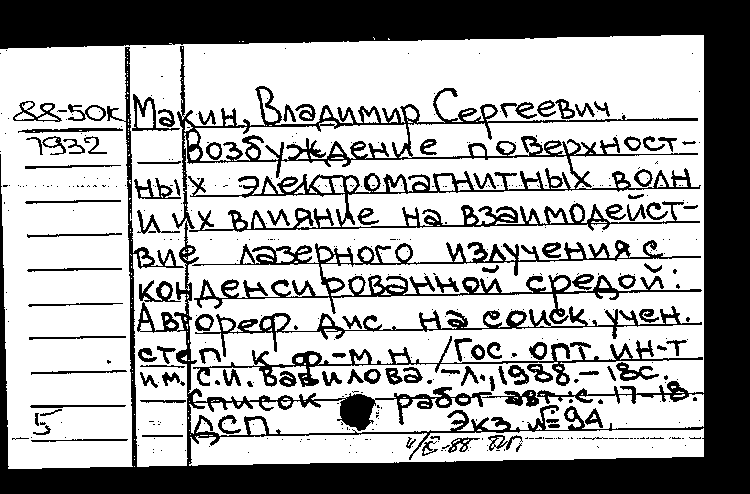 88-50к Макин, Владимир Сергеевич.
1932 Возбуждение поверхност-
ных электромагнитных волн
и их влияние на взаимодейст-
вие лазерного излучения с
конденсированной средой:
Автореф. дис. на соиск. учен.
степ. к ф.-м.н. /Гос. опт. ин-т
им. С.И. Вавилова. -Л., 1988. - 18с.
Список работ авт.: с. 17-18.
5 ДСП. Экз. № 94.